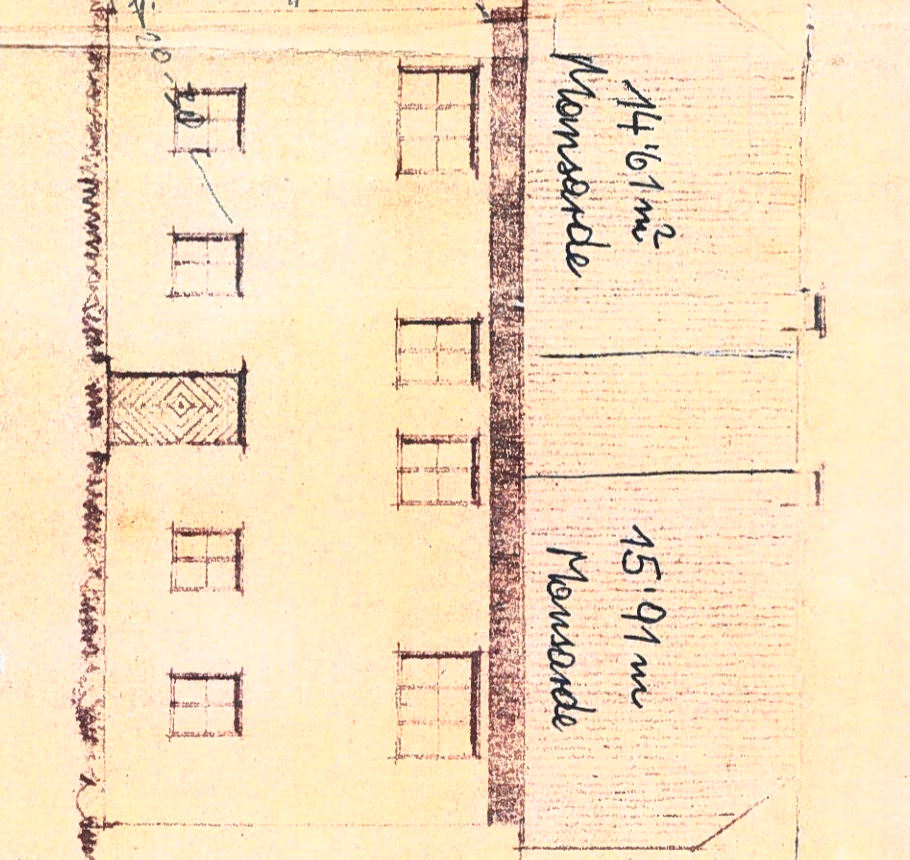 14'61 m²
Mansarde
15'91 m
Mansarde